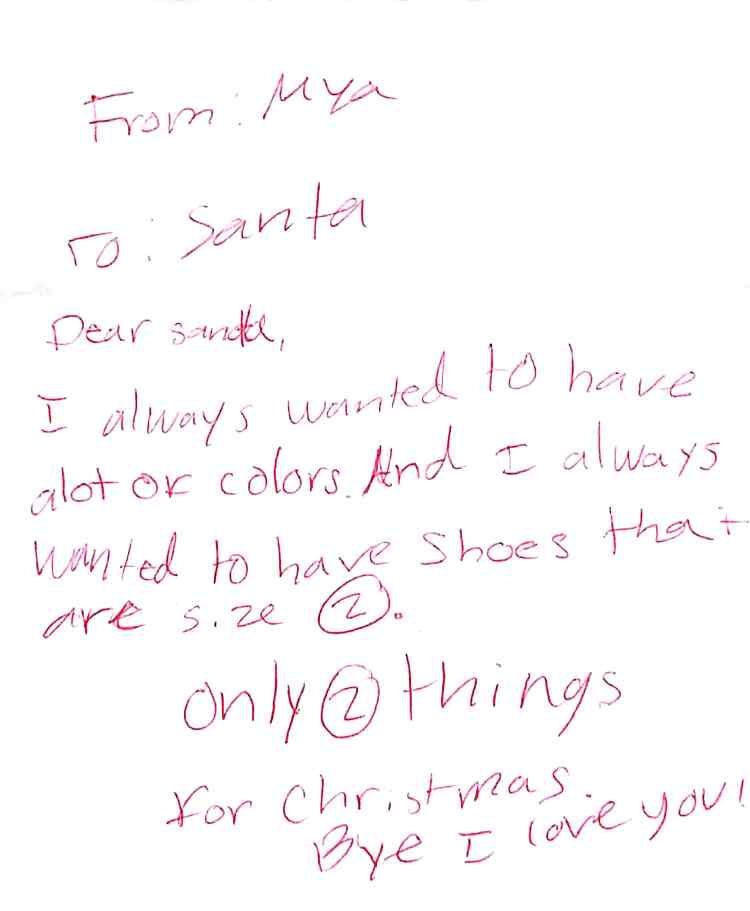 From: Mya
To: Santa
Dear santa,
I always wanted to have
alot of colors. And I always
wanted to have shoes that
are size 2.
only 2 things
for christmas.
Bye I love you!